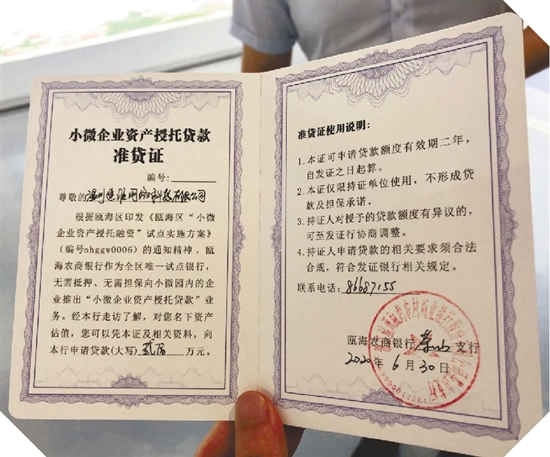 小微企业资产授托贷款
准贷证
编号:
尊敬的
根据瓯海区印发《瓯海区“小微
企业资产授托融资”试点实施方案》
（编号ohggw0006）的通知精神，瓯
海农商银行作为全区唯一试点银行，
无需抵押、无需担保向小微园内的企
业推出“小微企业资产授托贷款”业
务。经本行走访了解，对您名下资产
估值，您可以凭本证及相关资料，向
本行申请贷款(大写) 万元。
准贷证使用说明:
1.本证可申请贷款额度有效期二年，
自发证之日起算。
2.本证仅限持证单位使用，不形成贷
款及担保承诺。
3.持证人对授予的贷款额度有异议的，
可至发证行协商调整。
4.持证人申请贷款的相关要求须合法
合规，符合发证银行相关规定。
联系电话: 86687155
瓯海农商银行 茶山 支行
2020年6月30日